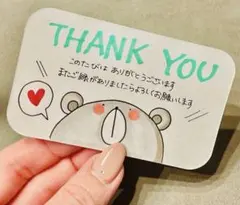 THANK YOU
このたびは ありがとうございます
またご縁がありましたらよろしくお願いします